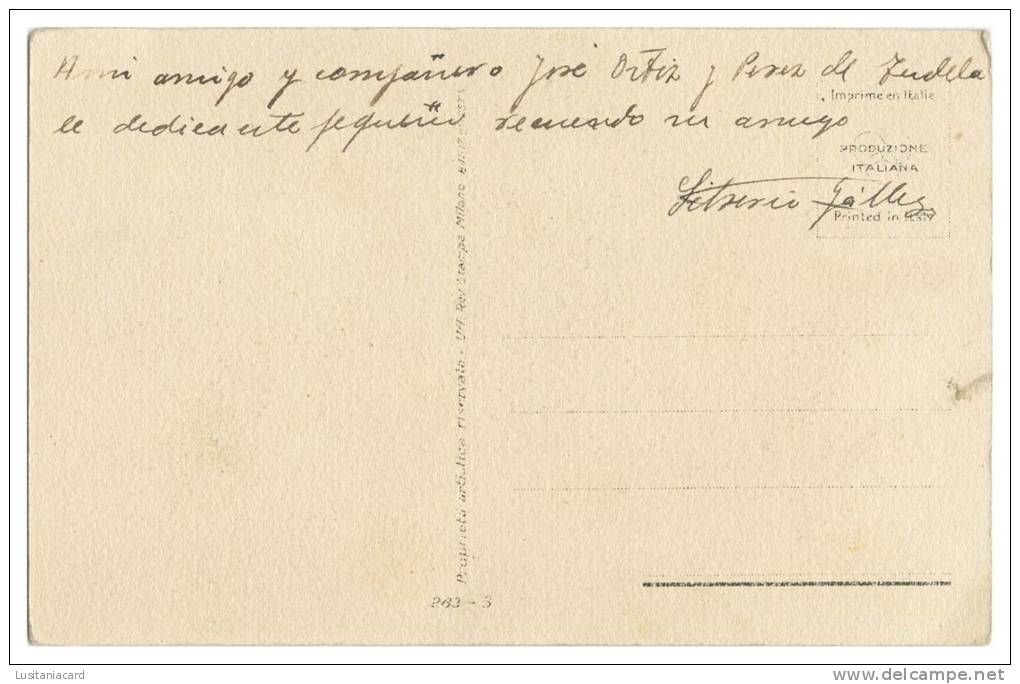 A mi amigo y compañero José Ortiz y Perez de Tudela
le dedica este pequeño recuerdo su amigo
Imprime en Italie
PRODUZIONE
ITALIANA
Printed in Italy
Proprietà artistica riservata - Uff. Rev. Stampa Milano
263 - 3
Lustaniacard
www.delcampe.net